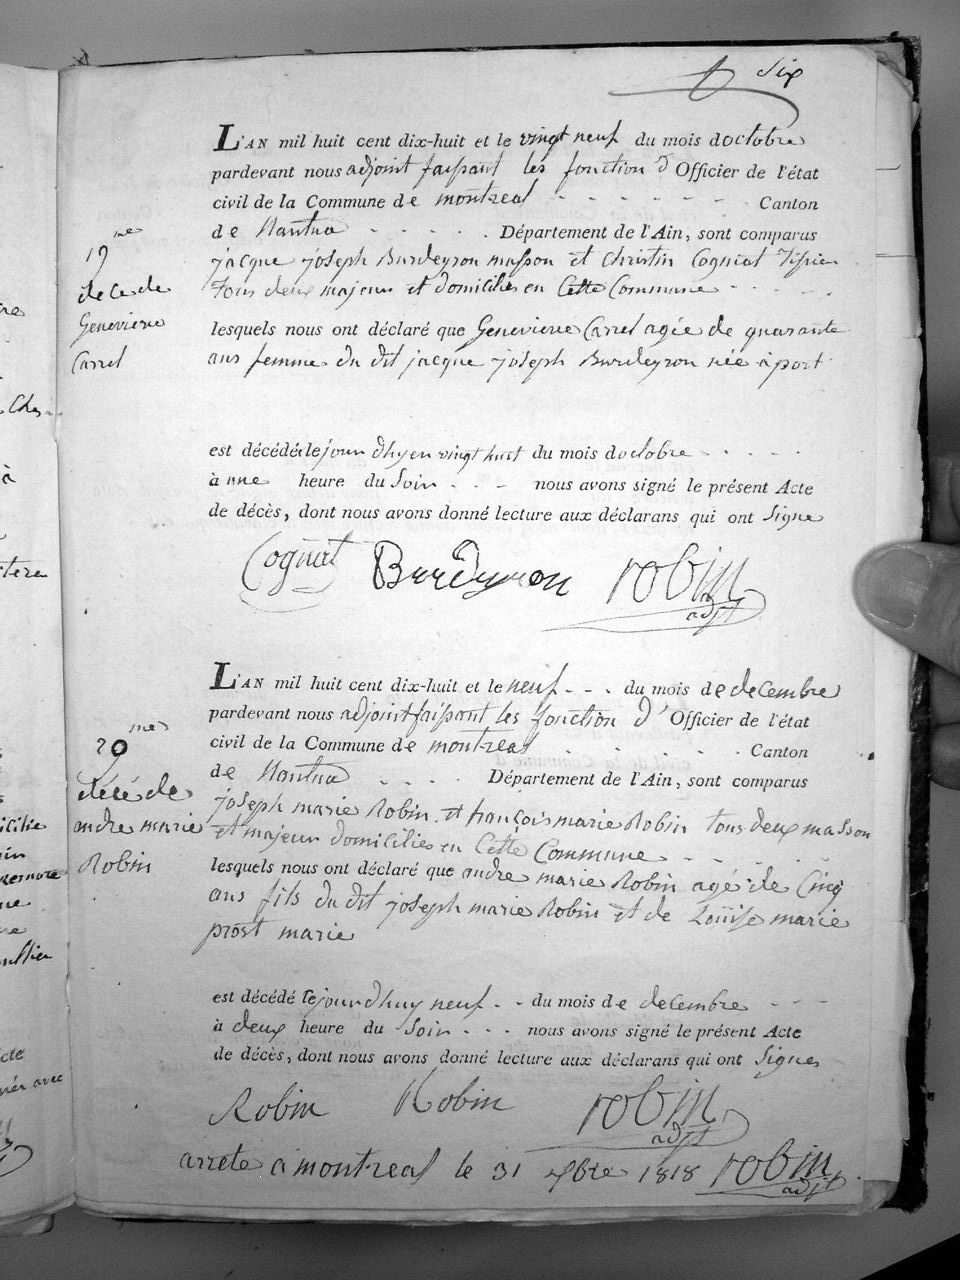 Six
L'AN mil huit cent dix-huit et le vingt neuf du mois doctobre
pardevant nous adjoint faissant les fonction d'Officier de l'état
civil de la Commune de montreal - - - - - - - Canton
de Nantua - - - - - Département de l'Ain, sont comparus
jacque joseph Burdeyron masson et christin Cognat
Tous deux majeur et domiciliés en Cette Commune - - - - -
19me
décé de
Genevieve
Carrel
lesquels nous ont déclaré que Genevieve Carrel agée de quarante
ans femme du dit jacque joseph Burdeyron née a port
est décédé le jour dhyen vingt huit du mois doctobre - - - - -
à une heure du Soir - - - nous avons signé le présent Acte
de décès, dont nous avons donné lecture aux déclarans qui ont Signe
Cognat Burdeyron robin
adjt
L'AN mil huit cent dix-huit et le neuf - - - du mois de decembre
pardevant nous adjoint faissant les fonction d'Officier de l'état
civil de la Commune de montreal - - - - - - Canton
de Nantua - - - - Département de l'Ain, sont comparus
joseph marie Robin et françois marie Robin tous deux masson
et majeur domiciliés en Cette Commune - - - - - -
20me
décé de
andre marie
Robin
lesquels nous ont déclaré que andre marie Robin agé de Cinq
ans fils du dit joseph marie Robin et de Louise marie
prost marie
est décédé le jourdhuy neuf - - du mois de decembre - - -
à deux heure du Soir - - - nous avons signé le présent Acte
de décès, dont nous avons donné lecture aux déclarans qui ont Signes
Robin Robin robin
adjt
arrete a montreal le 31 xbre 1818 robin
adjt